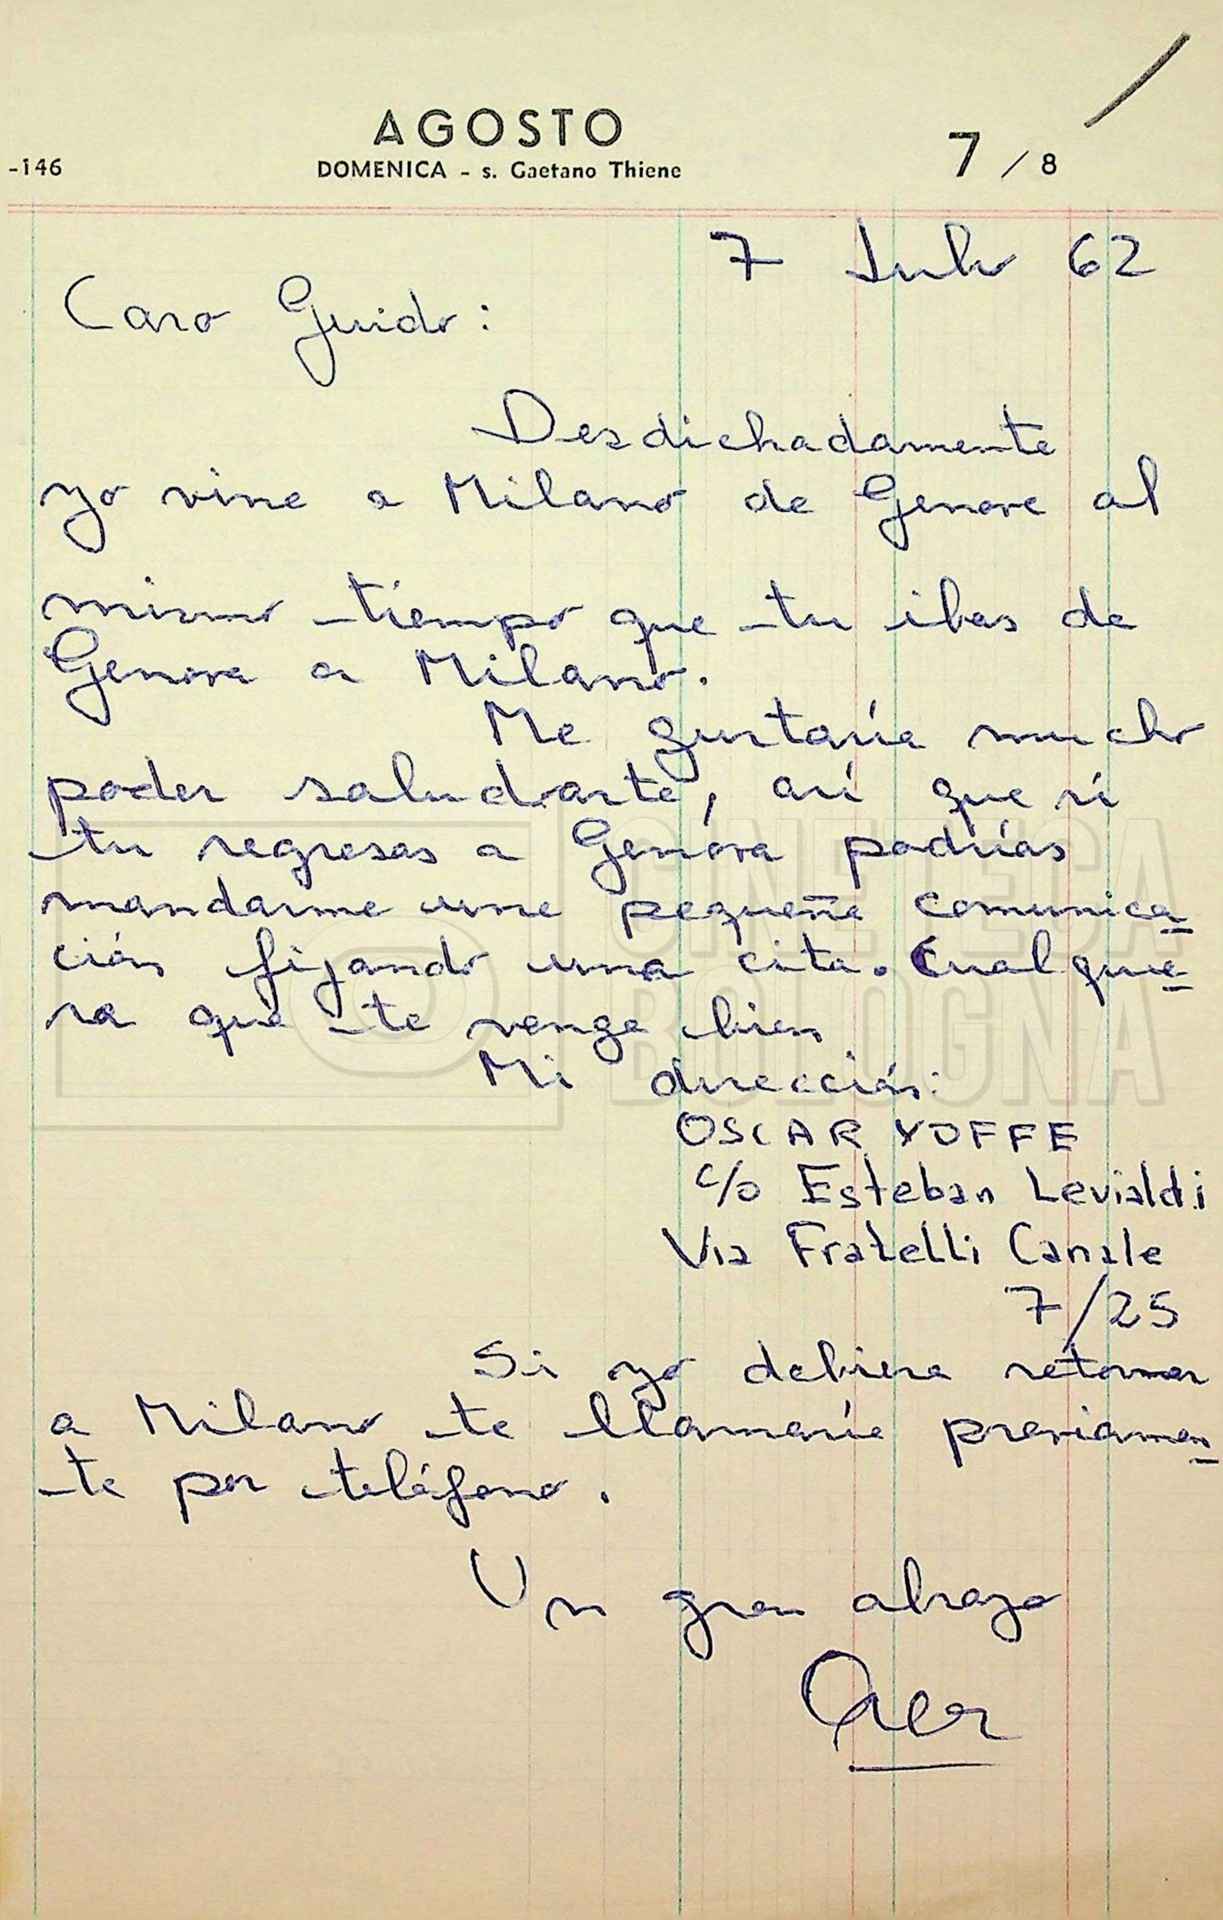 AGOSTO
-146
DOMENICA - s. Gaetano Thiene
7 / 8
7 Julio 62
Caro Guido:
Desdichadamente
yo vine a Milano de Genova al
mismo tiempo que tu ibas de
Genova a Milano.
Me gustaría mucho
poder saludarte, así que si
tu regresas a Genova podrías
mandarme una pequeña comunica-
ción fijando una cita. Cualquie-
ra que te venga bien
Mi dirección:
OSCAR YOFFE
c/o Esteban Levialdi
Via Fratelli Canale
7/25
Si yo debiera retornar
a Milano te llamaría previamen-
te por teléfono.
Un gran abrazo
CINETECA
BOLOGNA